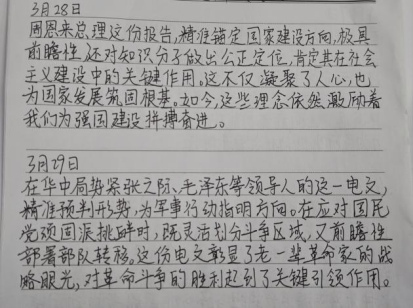 3月28日
周恩来总理这份报告,精准锚定国家建设方向,极具
前瞻性,还对知识分子做出公正定位,肯定其在社会
主义建设中的关键作用。这不仅凝聚了人心,也
为国家发展筑固根基。如今,这些理念依然激励着
我们为强国建设拼搏奋进。
3月29日
在华中局势紧张之际、毛泽东等领导人的这一电文,
精准预判形势,为军事行动指明方向。在应对国民
党顽固派挑衅时,既灵活划分斗争区域,又前瞻性
部署部队转移。这份电文彰显了老一辈革命家的战
略眼光,对革命斗争的胜利起到了关键引领作用。